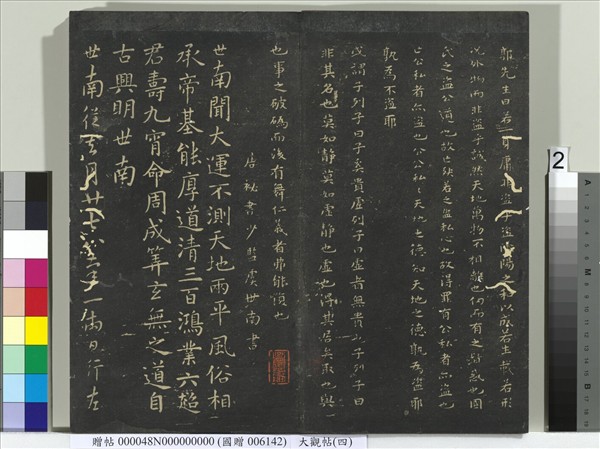 郭先生曰若一身庸非盜乎盜陰陽之和以成若生載若形
況外物而非盜乎誠然天地萬物不相離也仞而有之皆惑也國
氏之盜公道也故亡殃若之盜私心也故得罪有公私者亦盜也
亡公私者亦盜也公公私私天地之德知天地之德孰為盜耶
孰為不盜耶
或謂子列子曰子奚貴虛列子曰虛者無貴也子列子曰
非其名也莫如靜莫如虛靜也虛也得其居矣取也與
也事之破碼而後有舞仁義者弗能復也
唐秘書少監虞世南書
世南聞大運不測天地兩平風俗相
承帝基能厚道清三百鴻業六超
君壽九霄命周成筭玄無之道自
古興明世南
世南從去月廿七八
一兩日行左
2
贈帖 000048N000000000 (國贈 006142) 大觀帖(四)